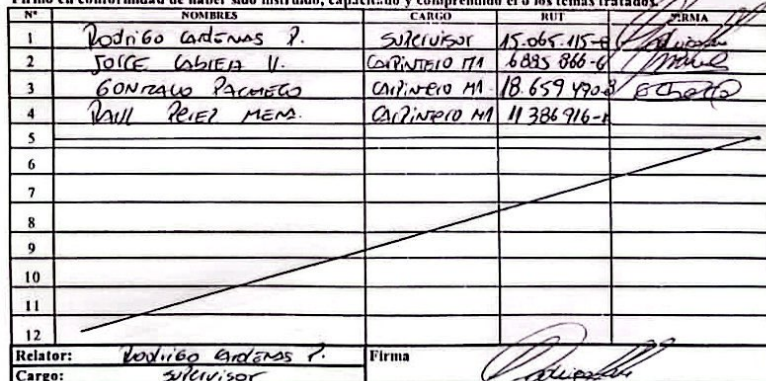 Firmo en conformidad de haber sido instruido, capacitado y comprendido el o los temas tratados.
N° NOMBRES CARGO RUT FIRMA
1 Rodrigo Cardenas P. Supervisor 15.065.115-8
2 JORGE CABIERA V. CARPINTERO M1 6885 866-6
3 GONZALO PACHECO CARPINTERO M1. 18.659 490-8
4 RAUL PEREZ MENA. CARPINTERO M1 11 386 916-
5
6
7
8
9
10
11
12
Relator: Rodrigo Cardenas P. Firma
Cargo: Supervisor